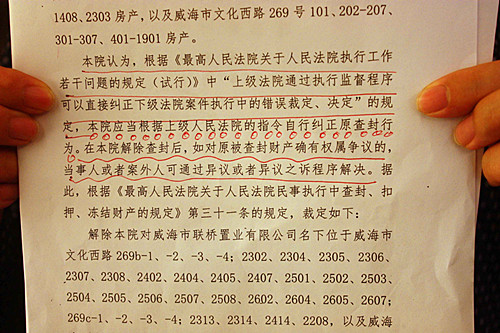 1408、2303 房产，以及威海市文化西路 269 号 101、202-207、
301-307、401-1901 房产。
本院认为，根据《最高人民法院关于人民法院执行工作
若干问题的规定（试行）》中“上级法院通过执行监督程序
可以直接纠正下级法院案件执行中的错误裁定、决定”的规
定，本院应当根据上级人民法院的指令自行纠正原查封行
为。在本院解除查封后，如对原被查封财产确有权属争议的，
当事人或者案外人可通过异议或者异议之诉程序解决。据
此，根据《最高人民法院关于人民法院民事执行中查封、扣
押、冻结财产的规定》第三十一条的规定，裁定如下：
解除本院对威海市联桥置业有限公司名下位于威海市
文化西路 269b-1、-2、-3、-4；2302、2304、2305、2306、
2307、2308、2402、2404、2405、2407、2501、2502、2503、
2504、2505、2506、2507、2508、2602、2604、2605、2607；
269c-1、-2、-3、-4；2313、2314、2414、2208，以及威海